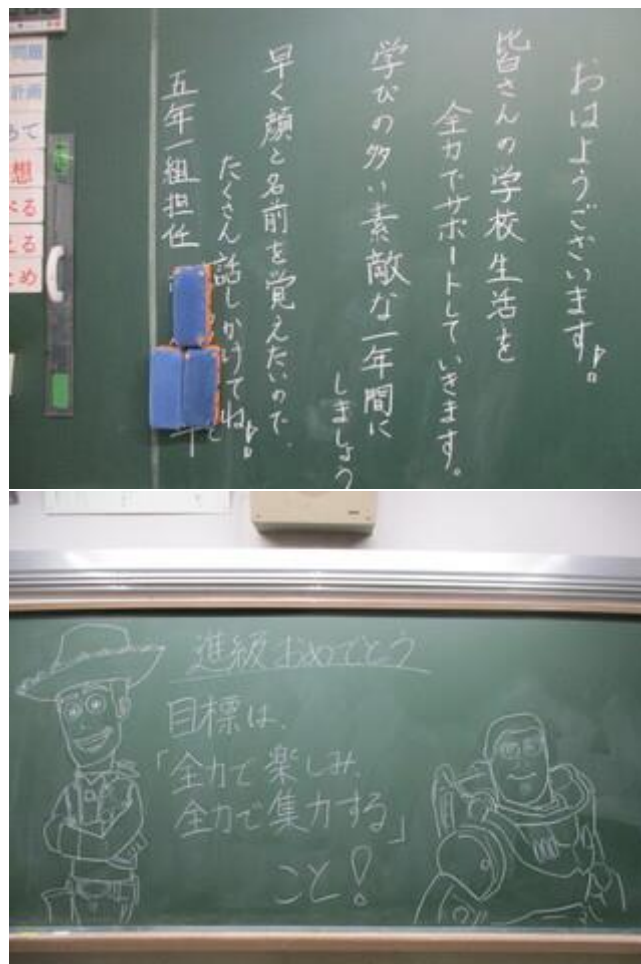 おはようございます!。
皆さんの学校生活を
全力でサポートしていきます。
学びの多い素敵な一年間に
しましょう
早く顔と名前を覚えたいので、
たくさん話しかけてね!。
五年一組担任
問題
計画
めて
想
べる
える
とめ
進級おめでとう
目標は、
「全力で楽しみ、
全力で集力する」
こと!